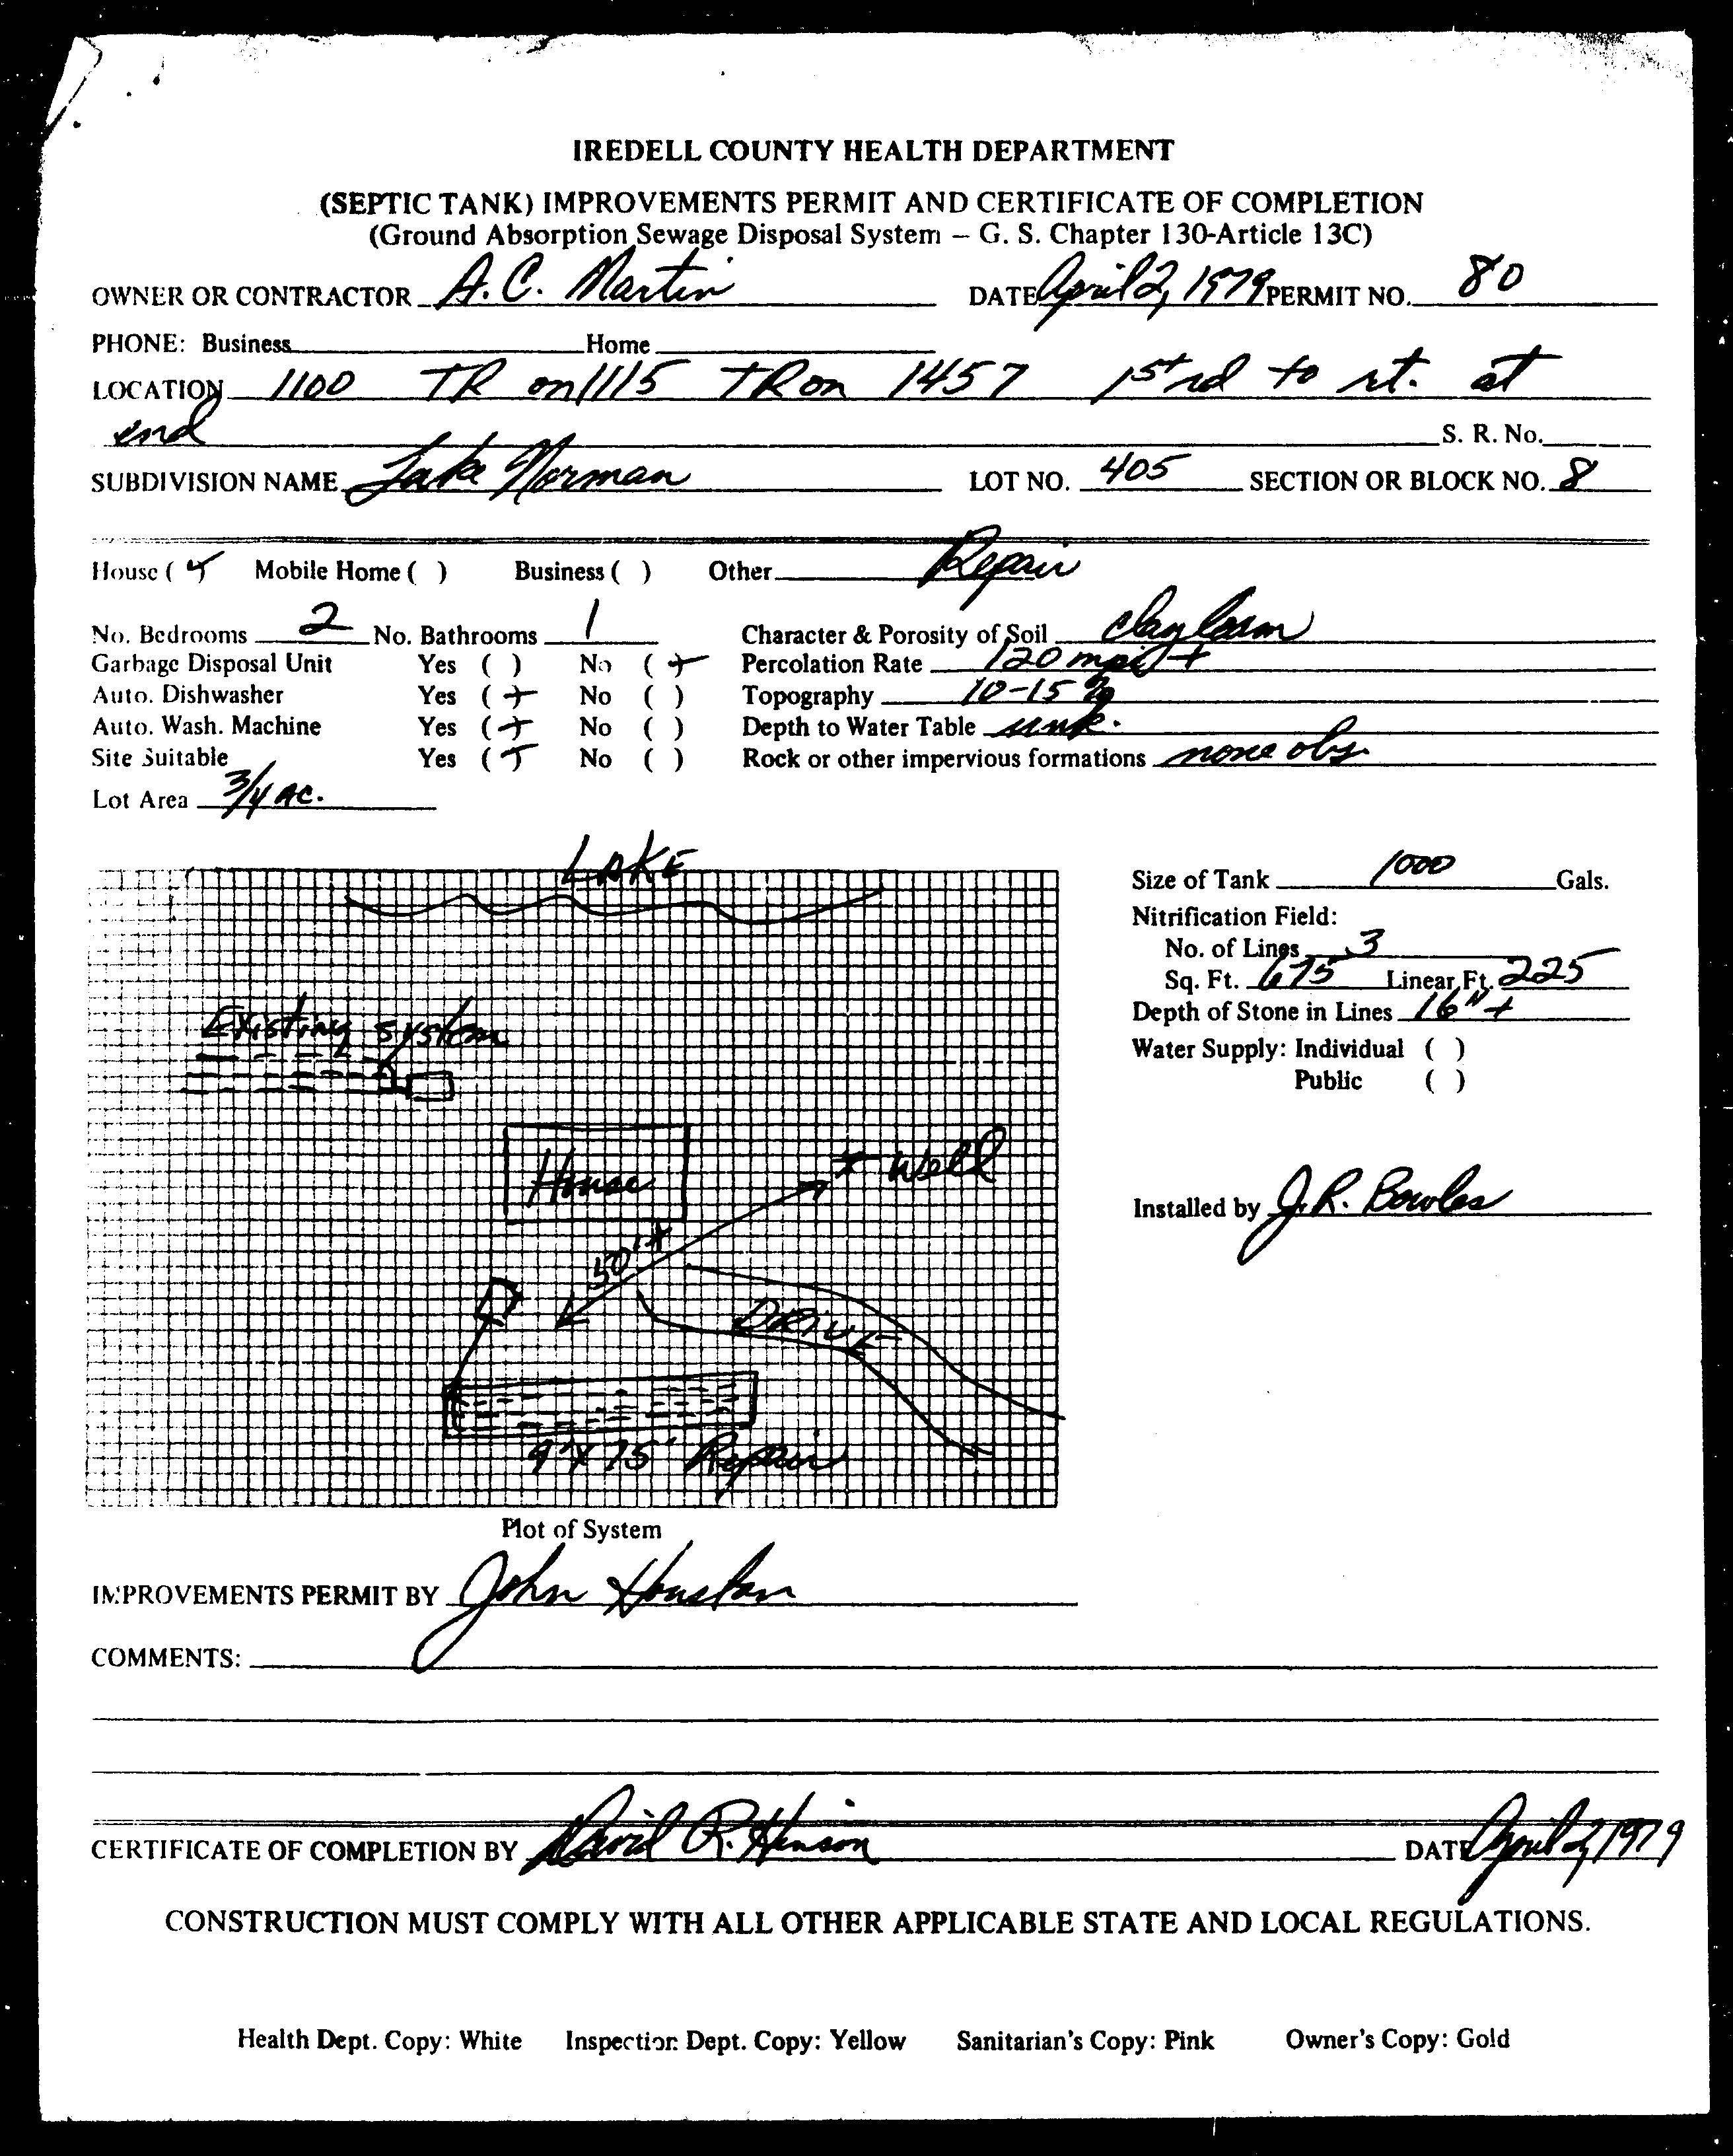 IREDELL COUNTY HEALTH DEPARTMENT
(SEPTIC TANK) IMPROVEMENTS PERMIT AND CERTIFICATE OF COMPLETION
(Ground Absorption Sewage Disposal System – G. S. Chapter 130-Article 13C)
OWNER OR CONTRACTOR A.C. Martin DATE April 2, 1979 PERMIT NO. 80
PHONE: Business Home
LOCATION 1100 TR on 1115 TR on 1457 1st rd to rt. at
end S. R. No.
SUBDIVISION NAME Lake Norman LOT NO. 405 SECTION OR BLOCK NO. 8
House ( ) Mobile Home ( ) Business ( ) Other Repair
No. Bedrooms 2 No. Bathrooms 1 Character & Porosity of Soil clay loam
Garbage Disposal Unit Yes ( ) No (+) Percolation Rate 120 mpi +
Auto. Dishwasher Yes (+) No ( ) Topography 10-15 %
Auto. Wash. Machine Yes (+) No ( ) Depth to Water Table unk.
Site Suitable Yes (+) No ( ) Rock or other impervious formations none obs.
Lot Area 3/4 AC.
LAKE
Size of Tank 1000 Gals.
Nitrification Field:
No. of Lines 3
Sq. Ft. 675 Linear Ft. 225
Depth of Stone in Lines 16" +
Water Supply: Individual ( )
Public ( )
Existing system
House
Well
50'+
DRIVE
9' X 75' Repair
Installed by J.R. Bowles
Plot of System
IMPROVEMENTS PERMIT BY John Houston
COMMENTS:
CERTIFICATE OF COMPLETION BY David R. Henson DATE April 2, 1979
CONSTRUCTION MUST COMPLY WITH ALL OTHER APPLICABLE STATE AND LOCAL REGULATIONS.
Health Dept. Copy: White Inspection Dept. Copy: Yellow Sanitarian's Copy: Pink Owner's Copy: Gold